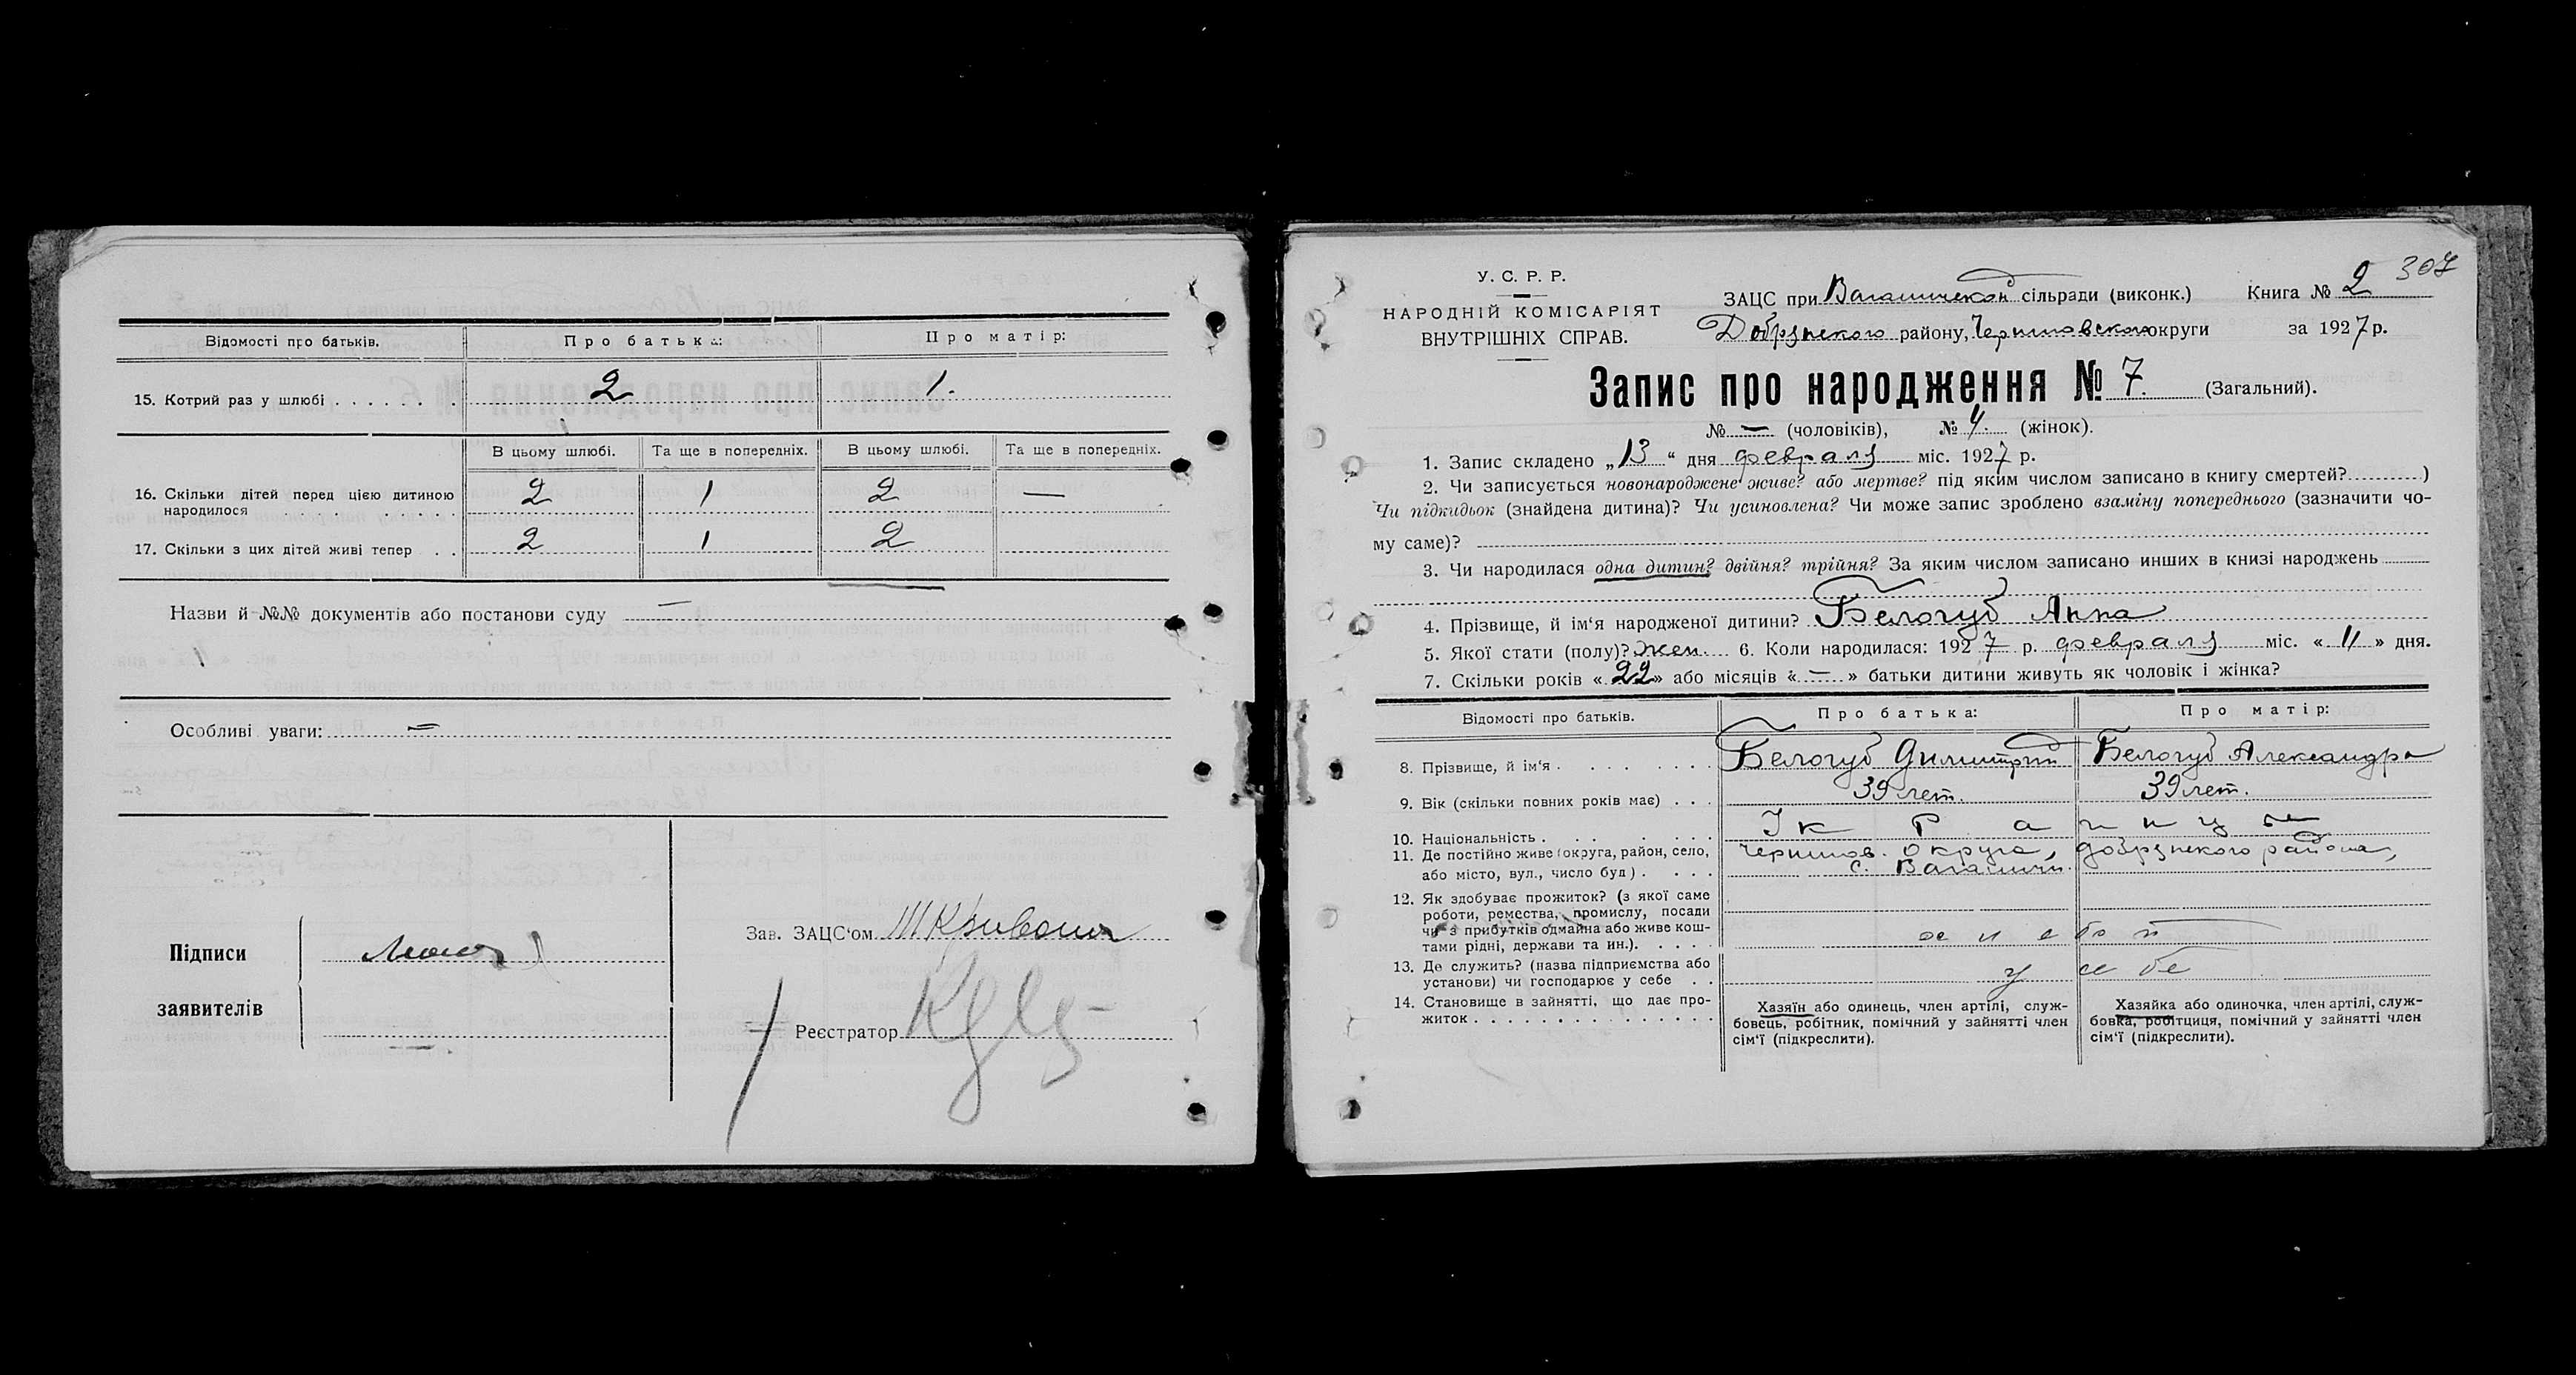 Відомості про батьків. Про батька: Про матір:
15. Котрий раз у шлюбі . . . . . . 2 1.
В цьому шлюбі. Та ще в попередніх. В цьому шлюбі. Та ще в попередніх.
16. Скільки дітей перед цією дитиною народилося . . . . 2 1 2 —
17. Скільки з цих дітей живі тепер . . 2 1 2
Назви й №№ документів або постанови суду —
Особливі уваги: =
Підписи
заявителів
Зав. ЗАЦС‘ом
Реєстратор
307
У. С. Р. Р.
НАРОДНІЙ КОМІСАРІЯТ
ВНУТРІШНІХ СПРАВ.
ЗАЦС при сільради (виконк.) Книга № 2
Добрянского району, Черниговского округи за 1927 р.
Запис про народження № 7. (Загальний).
№ — (чоловіків), № 4. (жінок).
1. Запис складено „13“ дня февраля міс. 1927 р.
2. Чи записується новонароджене живе? або мертве? під яким числом записано в книгу смертей? )
Чи підкидьок (знайдена дитина)? Чи усиновлена? Чи може запис зроблено взаміну попереднього (зазначити чо-
му саме)?
3. Чи народилася одна дитин? двійня? трійня? За яким числом записано инших в книзі народжень
4. Прізвище, й ім‘я народженої дитини? Белогуб Анна
5. Якої стати (полу)? жен. 6. Коли народилася: 1927 р. февраля міс. « 11 » дня.
7. Скільки років « 22 » або місяців « — » батьки дитини живуть як чоловік і жінка?
Відомості про батьків. Про батька: Про матір:
8. Прізвище, й ім‘я . . . . . . Белогуб Димитрий Белогуб Александра
9. Вік (скільки повних років має) . . . 39 лет. 39 лет.
10. Національність . . . . . . Украинцы
11. Де постійно живе (округа, район, село, Чернигов. округа, Добрянского района,
або місто, вул., число буд) . . . . с. Ваганичи.
12. Як здобуває прожиток? (з якої саме
роботи, ремества, промислу, посади
чи з прибутків одмайна або живе кош-
тами рідні, держави та ин.). . . . .
13. Де служить? (назва підприємства або
установи) чи господарює у себе . . у себе
14. Становище в зайнятті, що дає про-
житок . . . . . . . . . . . . . .
Хазяїн або одинець, член артілі, служ-
бовець, робітник, помічний у зайнятті член
сім‘ї (підкреслити).
Хазяйка або одиночка, член артілі, служ-
бовка, робітциця, помічний у зайнятті член
сім‘ї (підкреслити).